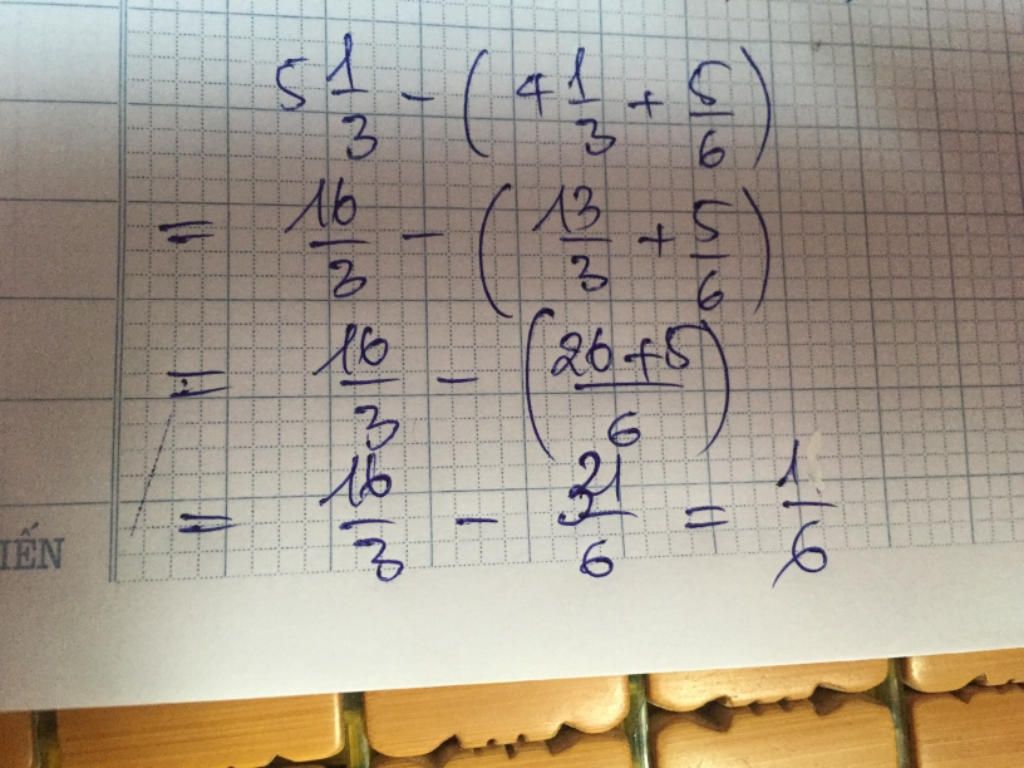 5 1/3 - ( 4 1/3 + 5/6 )
= 16/3 - ( 13/3 + 5/6 )
= 16/3 - ( 26 + 5 / 6 )
= 16/3 - 31/6 = 1/6
IẾN